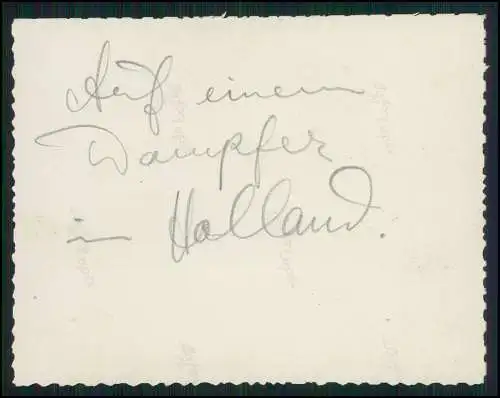 Auf einem
Dampfer
in Holland.